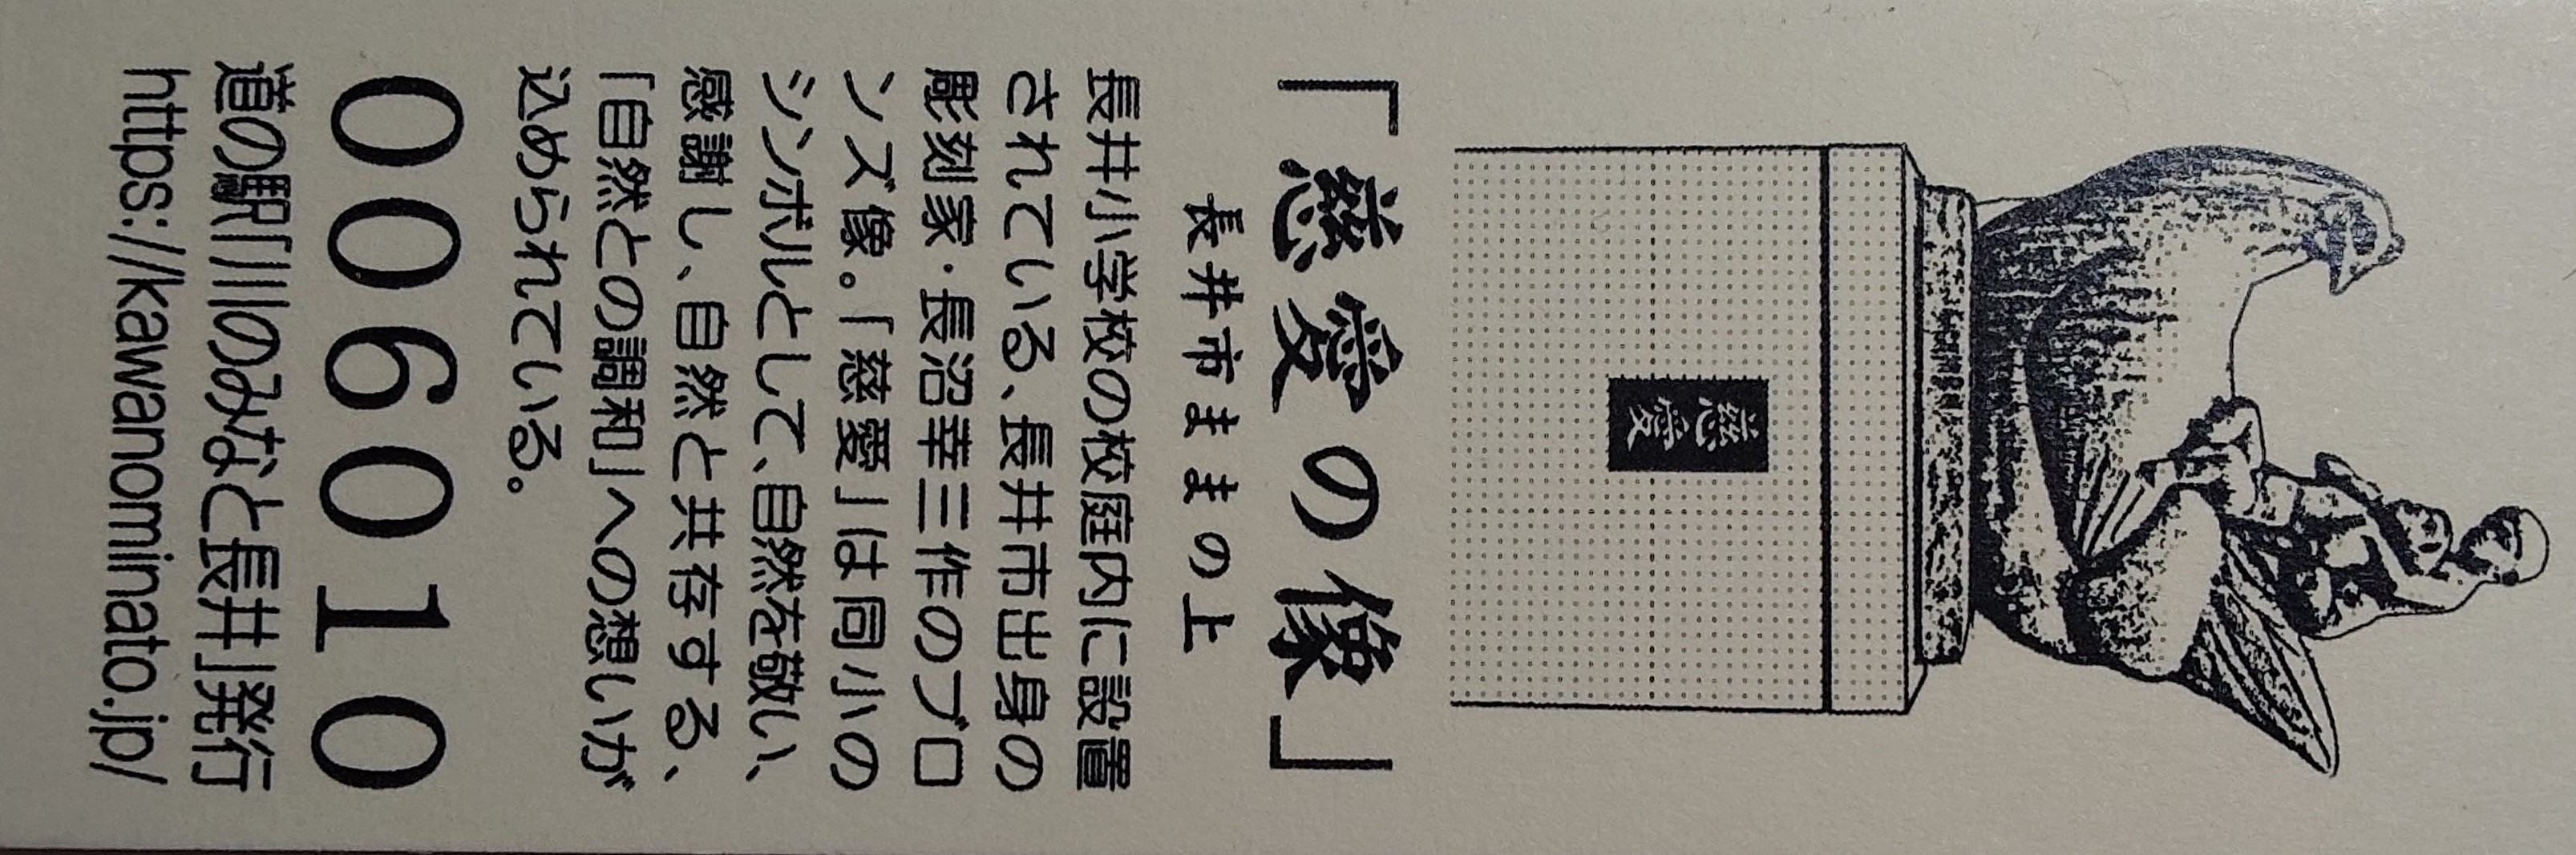 慈愛
「慈愛の像」
長井市ままの上
長井小学校の校庭内に設置
されている、長井市出身の
彫刻家・長沼孝三作のブロ
ンズ像。「慈愛」は同小の
シンボルとして、自然を敬い、
感謝し、自然と共存する、
「自然との調和」への想いが
込められている。
006010
道の駅「川のみなと長井」発行
https://kawanominato.jp/